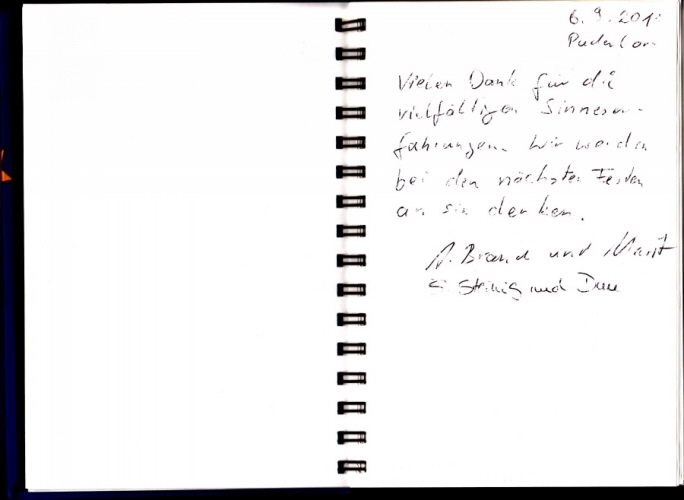 6. 9. 201
Vielen Dank für die
vielfältigen Sinneser-
fahrungen. Wir werden
bei den nächsten Festen
an sie denken.
A. Brand und Marit
und